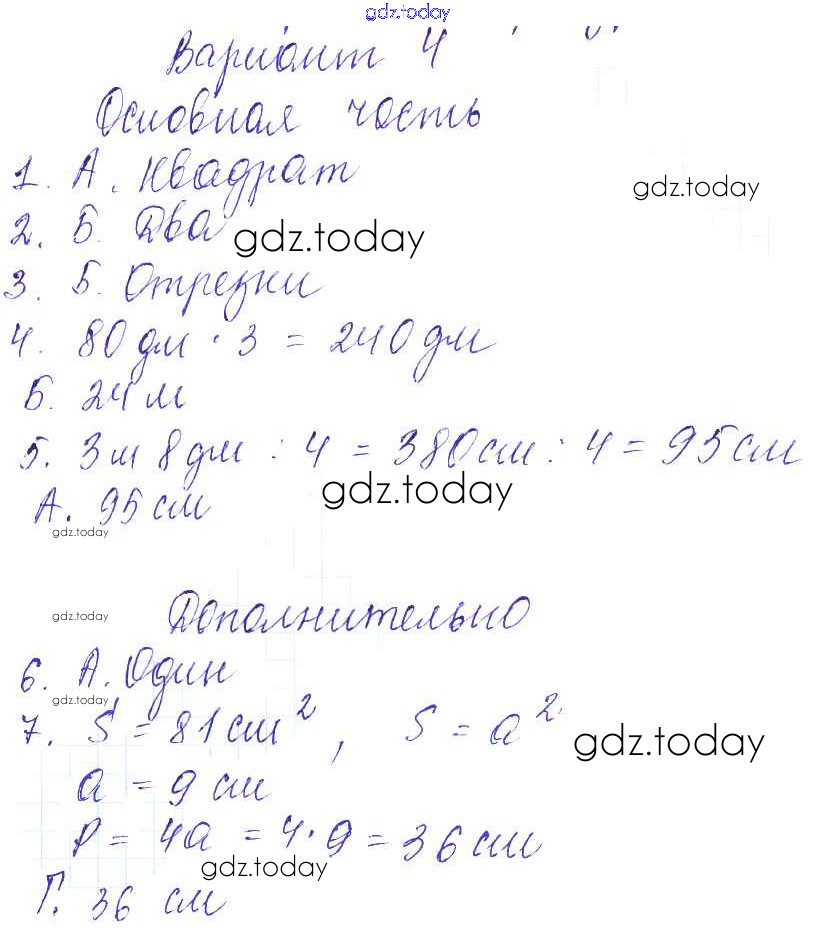 gdz.today
Вариант 4
Основная часть
1. А. Квадрат
gdz.today
2. Б. Два
gdz.today
3. Б. Отрезки
4. 80 дм · 3 = 240 дм
Б. 24 м
5. 3 м 8 дм : 4 = 380 см : 4 = 95 см
gdz.today
А. 95 см
gdz.today
Дополнительно
gdz.today
6. А. Один
gdz.today
7. S = 81 см², S = a²
gdz.today
a = 9 см
P = 4a = 4 · 9 = 36 см
gdz.today
Г. 36 см